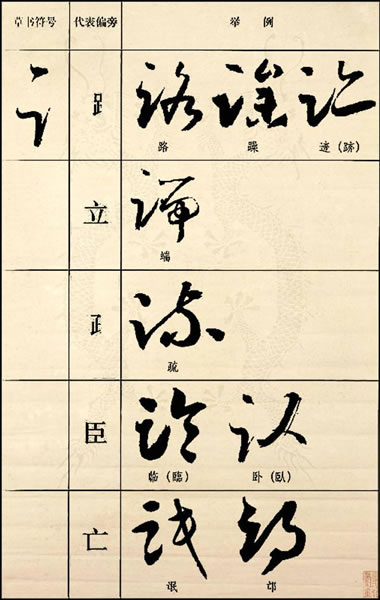 草书符号 代表偏旁 举 例
⻊
路 躁 迹（跡）
立
端
疏
臣
临（臨） 卧（臥）
亡
氓 邙